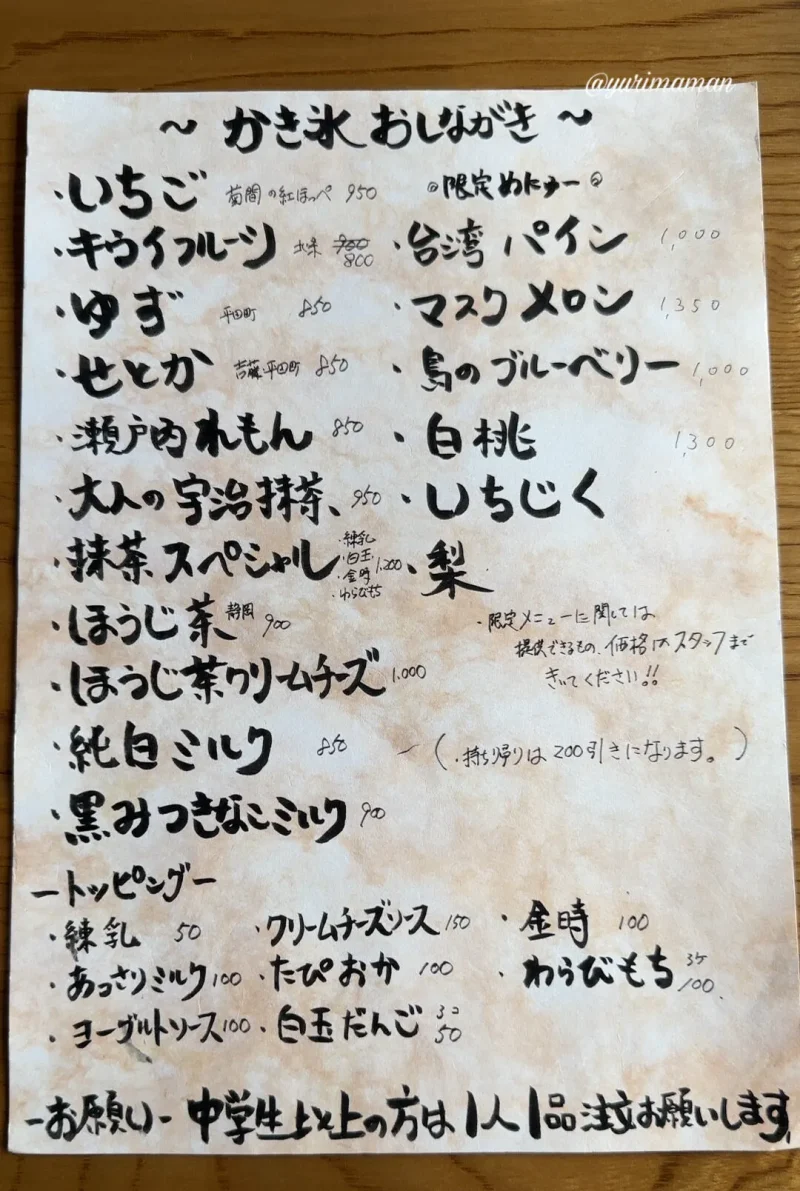 @yurimaman
〜 かき氷 おしながき 〜
・いちご 菊間の紅ほっぺ 950
・キウイフルーツ 900 800
・ゆず 平田町 850
・せとか 吉藤・平田町 850
・瀬戸内れもん 850
・大人の宇治抹茶、 950
・抹茶スペシャル ・練乳 ・白玉 ・金時 ・わらびもち 1,200
・ほうじ茶 静岡 900
・ほうじ茶クリームチーズ 1,000
・純白ミルク 850
・黒みつきなこミルク 900
◎限定めにゅー◎
・台湾パイン 1,000
・マスクメロン 1,350
・島のブルーベリー 1,000
・白桃 1,300
・いちじく
・梨
・限定メニューに関しては
提供できるもの、価格はスタッフまで
きいてください!!
(・持ち帰りは200引きになります。)
ートッピングー
・練乳 50
・あっさりミルク 100
・ヨーグルトソース 100
・クリームチーズソース 150
・たぴおか 100
・白玉だんご 3コ 50
・金時 100
・わらびもち 3ケ 100
ーお願いー 中学生以上の方は1人1品注文お願いします。